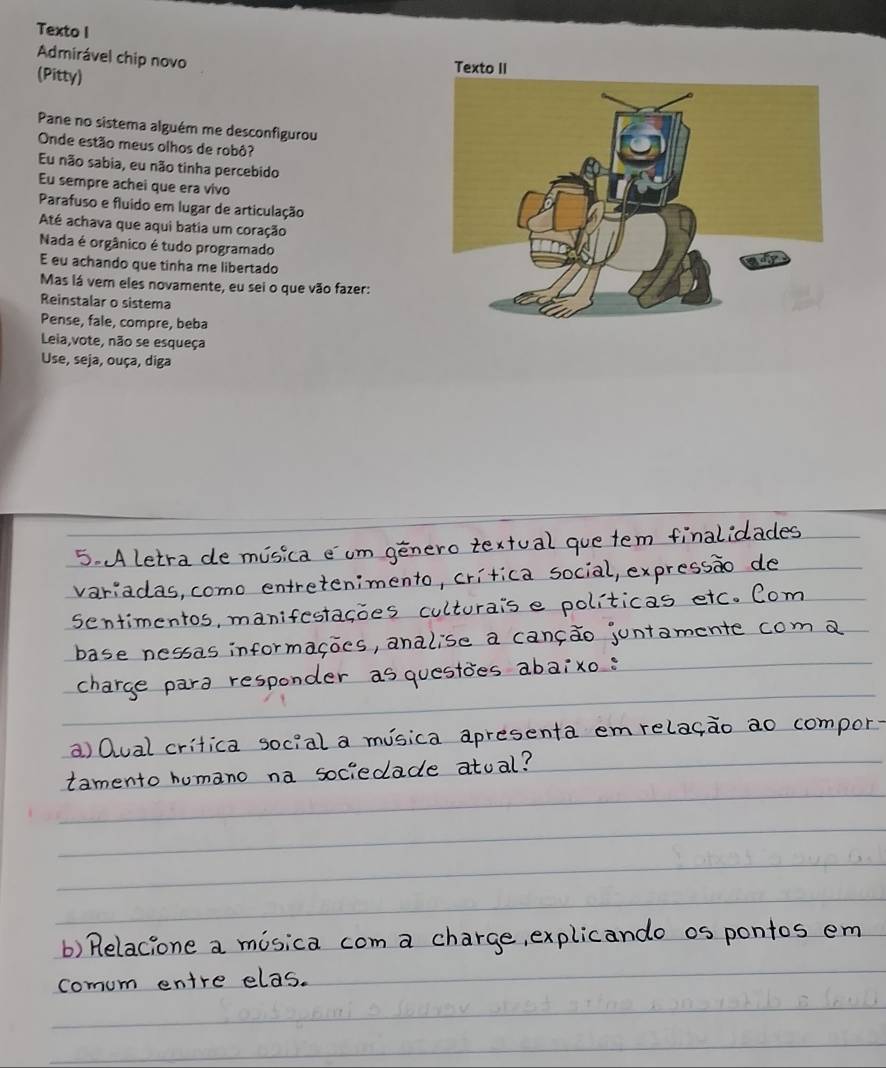 Texto I
Admirável chip novo
(Pitty)
Pane no sistema alguém me desconfigurou
Onde estão meus olhos de robô?
Eu não sabia, eu não tinha percebido
Eu sempre achei que era vivo
Parafuso e fluido em lugar de articulação
Até achava que aqui batia um coração
Nada é orgânico é tudo programado
E eu achando que tinha me libertado
Mas lá vem eles novamente, eu sei o que vão fazer:
Reinstalar o sistema
Pense, fale, compre, beba
Leia,vote, não se esqueça
Use, seja, ouça, diga
Texto II
5. A letra de música é um gênero textual que tem finalidades
variadas, como entretenimento, crítica social, expressão de
sentimentos, manifestações culturais e políticas etc. Com
base nessas informações, analise a canção juntamente com a
charge para responder as questões abaixo:
a) Qual crítica social a música apresenta em relação ao compor-
tamento humano na sociedade atual?
b) Relacione a música com a charge, explicando os pontos em
comum entre elas.